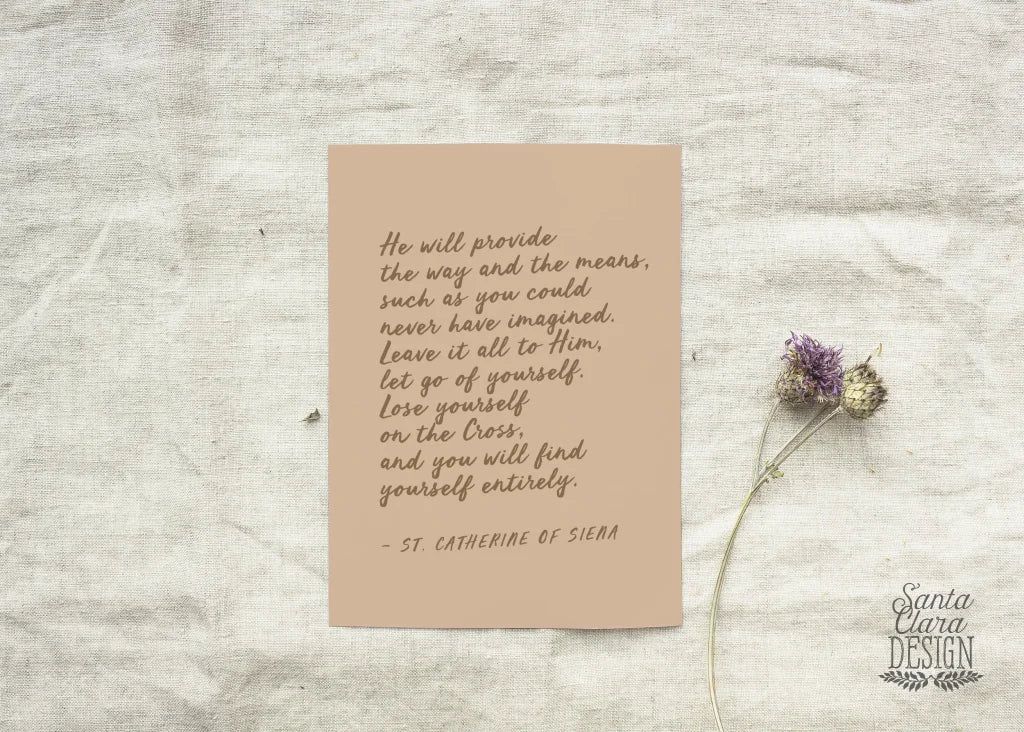 He will provide
the way and the means,
such as you could
never have imagined.
Leave it all to Him,
let go of yourself.
Lose yourself
on the Cross,
and you will find
yourself entirely.
- ST. CATHERINE OF SIENA
Santa
Clara
DESIGN